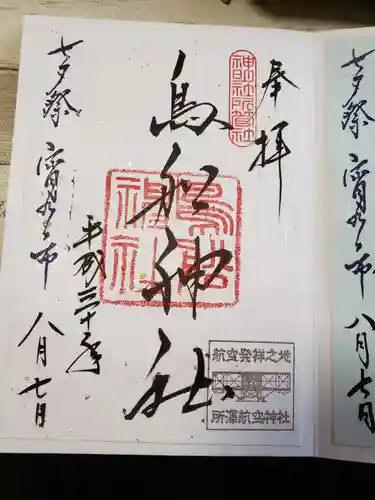 奉拝
神明社所管社
鳥船神社
鳥船
神社
航空発祥之地
所澤航空神社
平成三十年
八月七日
七夕祭
八月七日
七夕祭